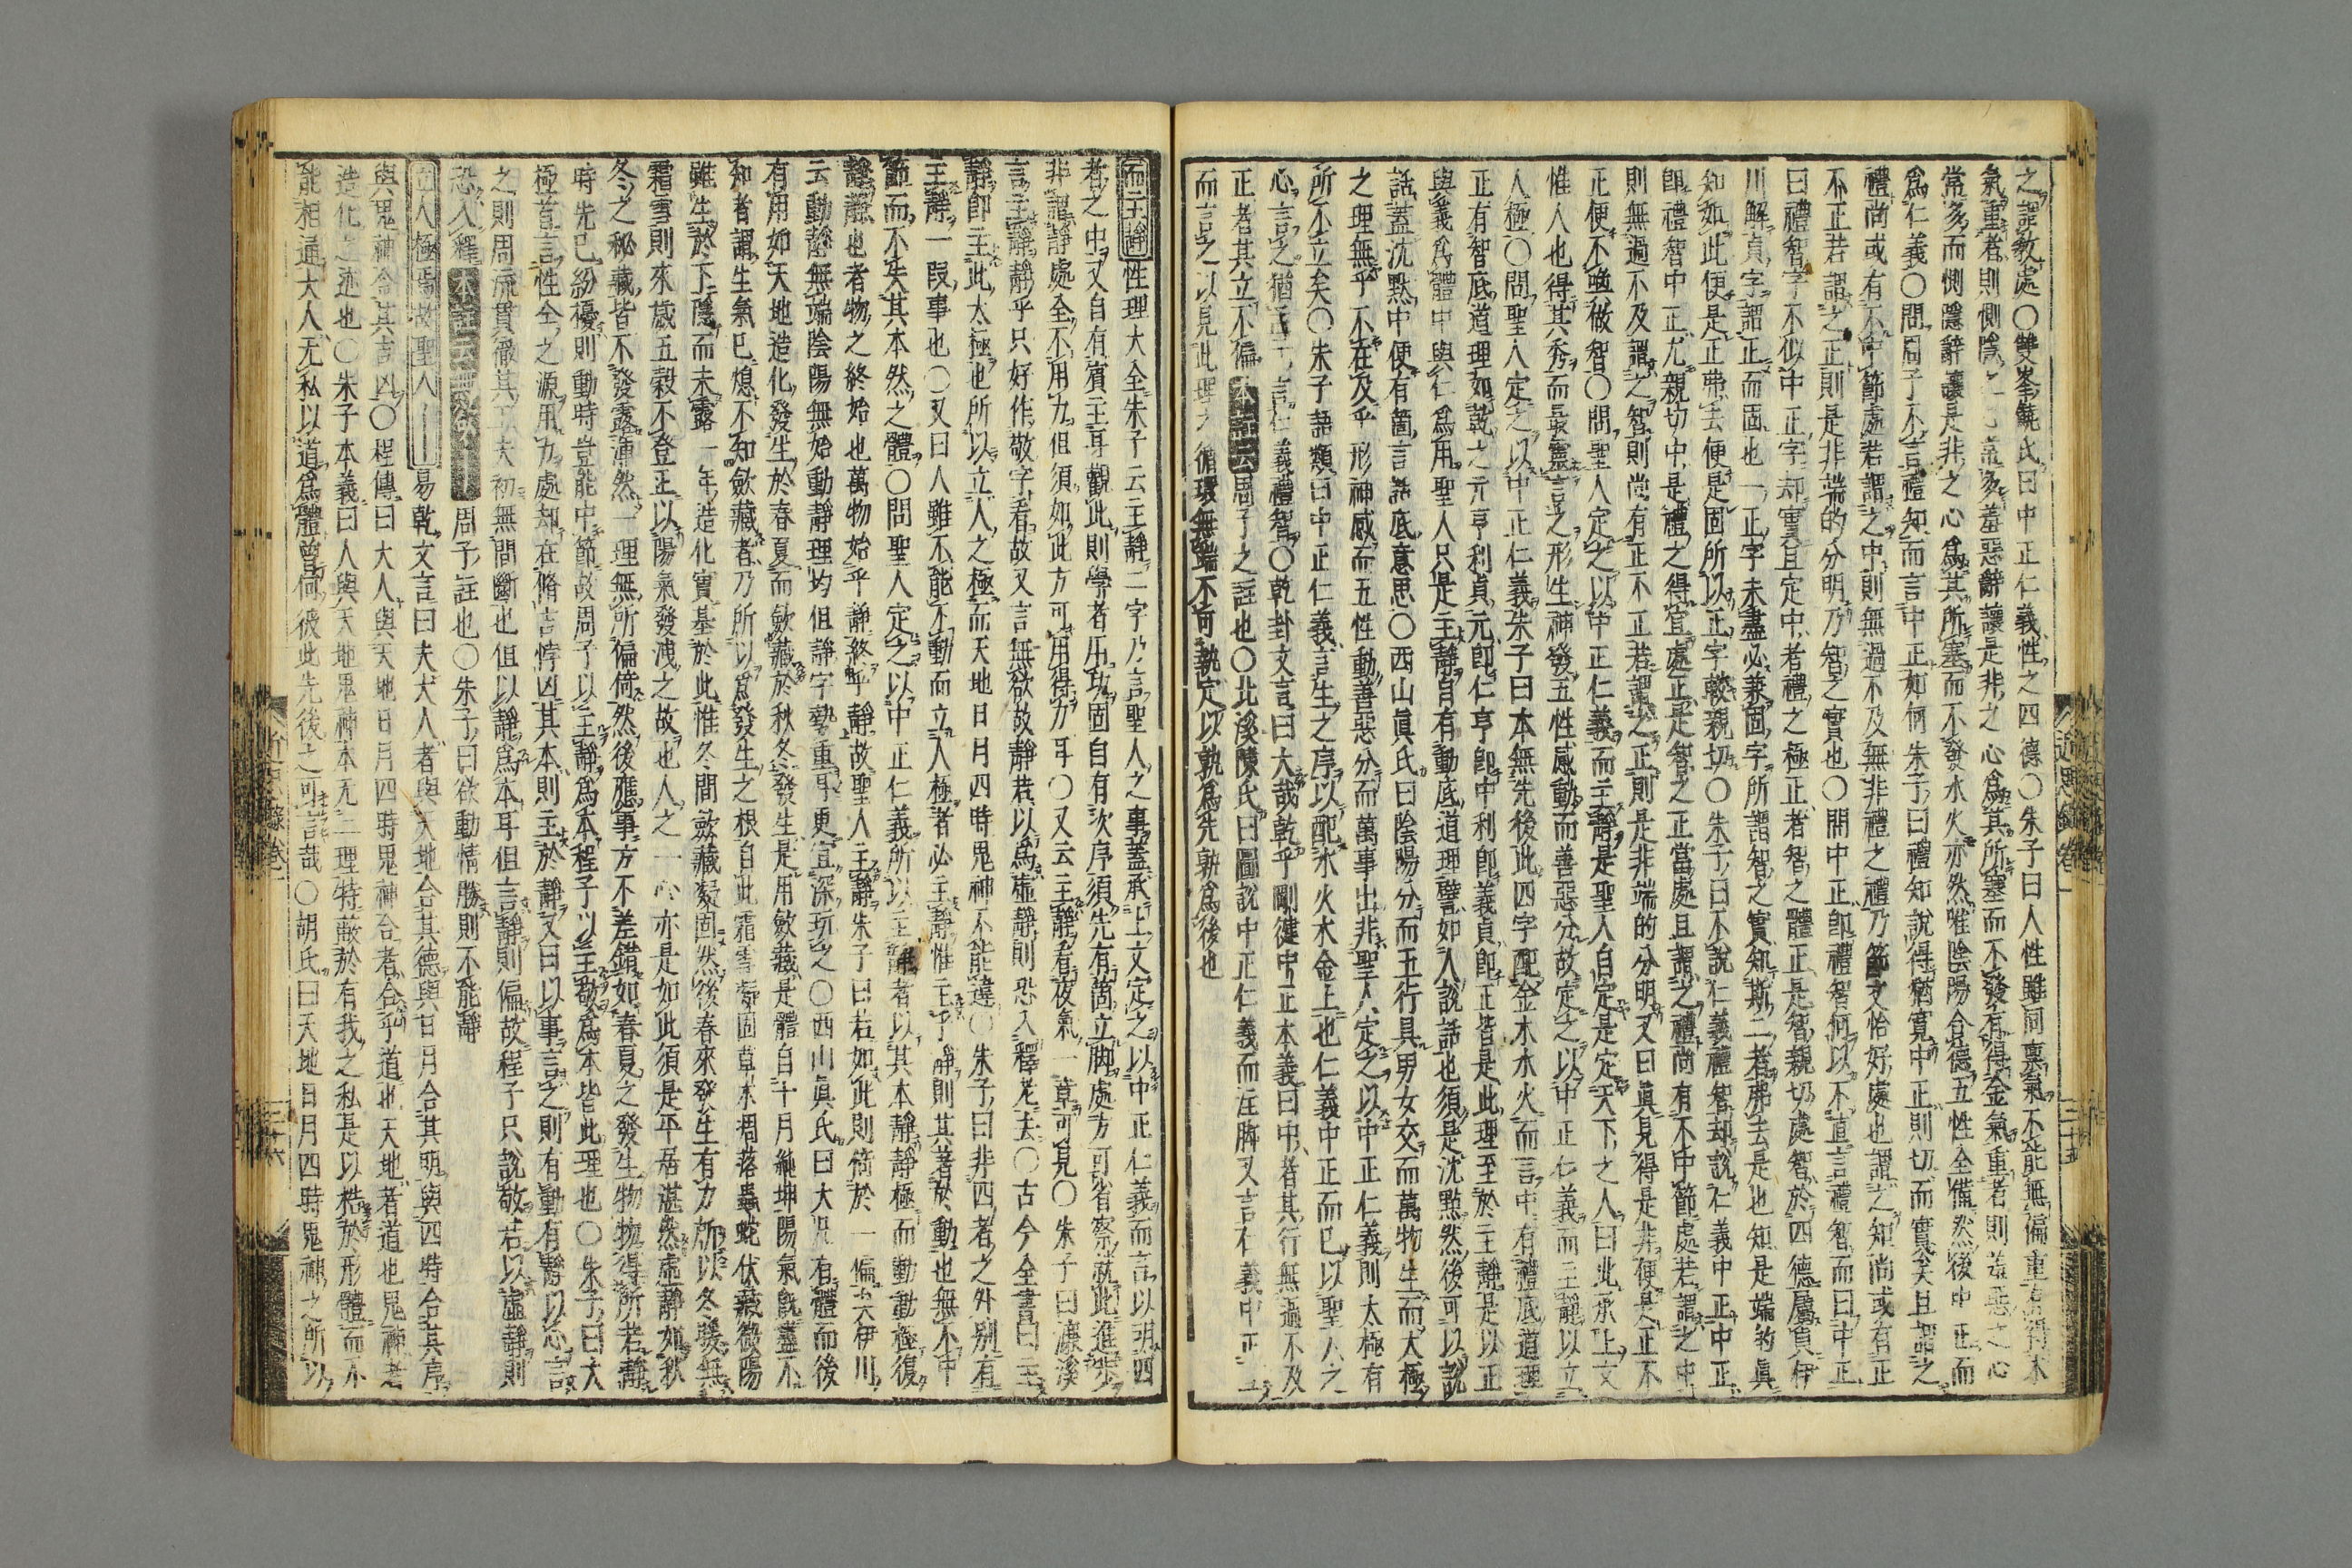 之謂教處○雙峯饒氏曰中正仁義性之四德○朱子曰人性雖同稟氣不能無偏重有得木
氣重者則惻隱之心常多羞惡辭讓是非之心爲其所塞而不發有得金氣重者則羞惡之心
常多而惻隱辭讓是非之心爲其所塞而不發水火亦然唯陰陽合德五性全備然後中正而
爲仁義○問周子不言禮知而言中正如何朱子曰禮知說得猶寬中正則切而實矣且謂之
禮尚或有不中節處若謂之中則無過不及無非禮之禮乃節文恰好處也謂之知尚或有正
不正若謂之正則是非端的分明乃智之實也○問中正即禮智何以不直言禮智而曰中正
曰禮智字不似中正字却實且定中者禮之極正者智之體正是智親切處智於四德屬貞伊
川解貞字謂正而固也一正字未盡必兼固字所謂智之實知斯二者弗去是也知是端的眞
知如此便是正弗去便是固所以正字較親切○朱子曰不說仁義禮智却說仁義中正中正
即禮智中正尤親切中是禮之得宜處正是智之正當處且謂之禮尚有不中節處若謂之中
則無過不及謂之智則尚有正不正若謂之正則是非端的分明又曰眞見得是非便是正不
正便不喚做智○問聖人定之以中正仁義而主靜是聖人自定是定天下之人曰此承上文
惟人也得其秀而最靈言之形生神發五性感動而善惡分故定之以中正仁義而主靜以立
人極○問聖人定之以中正仁義朱子曰本無先後此四字配金木水火而言中有禮底道理
正有智底道理如乾之元亨利貞元即仁亨即中利即義貞即正皆是此理至於主靜是以正
與義爲體中與仁爲用聖人只是主靜自有動底道理譬如人說話也須是沈默然後可以說
話蓋沈默中便有箇言語底意思○西山眞氏曰陰陽分而五行具男女交而萬物生而太極
之理無乎不在及乎形神感而五性動善惡分而萬事出非聖人定之以中正仁義則太極有
所不立矣○朱子語類曰中正仁義言生之序以配水火木金上也仁義中正而已以聖人之
心言之猶孟子言仁義禮智○乾卦文言曰大哉乾乎剛健中正本義曰中者其行無過不及
正者其立不偏 本註云周子之註也○北溪陳氏曰圖說中正仁義而註脚又言仁義中正
而言之以見此理之循環無端不可執定以孰爲先孰爲後也
而主靜 性理大全朱子云主靜二字乃言聖人之事蓋承上文定之以中正仁義而言以明四
者之中又自有賓主耳觀此則學者用功固自有次序須先有箇立脚處方可省察就此進步
非謂靜處全不用力但須如此方可用得力耳○又云主靜看夜氣一章可見○朱子曰濂溪
言主靜靜乎只好作敬字看故又言無欲故靜若以爲虛靜則恐入釋老去○古今全書曰主
靜即主此太極也所以立人之極而天地日月四時鬼神不能違○朱子曰非四者之外別有
主靜一段事也○又曰人雖不能不動而立人極者必主靜惟主乎靜則其著於動也無不中
節而不失其本然之體○問聖人定之以中正仁義所以主靜者以其本靜靜極而動動極復
靜靜也者物之終始也萬物始乎靜終乎靜故聖人主靜朱子曰若如此則倚於一偏去伊川
云動靜無端陰陽無始動靜理均但靜字勢重耳更宜深玩之○西山眞氏曰大凡有體而後
有用如天地造化發生於春夏而歛藏於秋冬發生是用歛藏是體自十月純坤陽氣旣盡不
知者謂生氣已熄不知歛藏者乃所以爲發生之根自此霜雪凝固草木凋落蟲蛇伏藏微陽
雖生於下隱而未露一年造化實基於此惟冬間歛藏凝固然後春來發生有力所以冬暖無
霜雪則來歲五穀不登正以陽氣發洩之故也人之一心亦是如此須是平居湛然虛靜如秋
冬之秘藏皆不發露渾然一理無所偏倚然後應事方不差錯如春夏之發生物物得所若靜
時先已紛擾則動時豈能中節故周子以主靜爲本程子以主敬爲本皆此理也○朱子曰太
極首言性全之源用力處却在脩吉悖凶其本則主於靜又曰以事言之則有動有靜以心言
之則周流貫徹其工夫初無間斷也但以靜爲本耳但言靜則偏故程子只說敬若以虛靜則
恐入釋 本註云無欲故靜 周子註也○朱子曰欲動情勝則不能靜
立人極焉故聖人 易乾文言曰夫大人者與天地合其德與日月合其明與四時合其序
與鬼神合其吉凶○程傳曰大人與天地日月四時鬼神合者合乎道也天地者道也鬼神者
造化之迹也○朱子本義曰人與天地鬼神本无二理特蔽於有我之私是以梏於形體而不
能相通大人无私以道爲體曾何彼此先後之可言哉○胡氏曰天地日月四時鬼神之所以